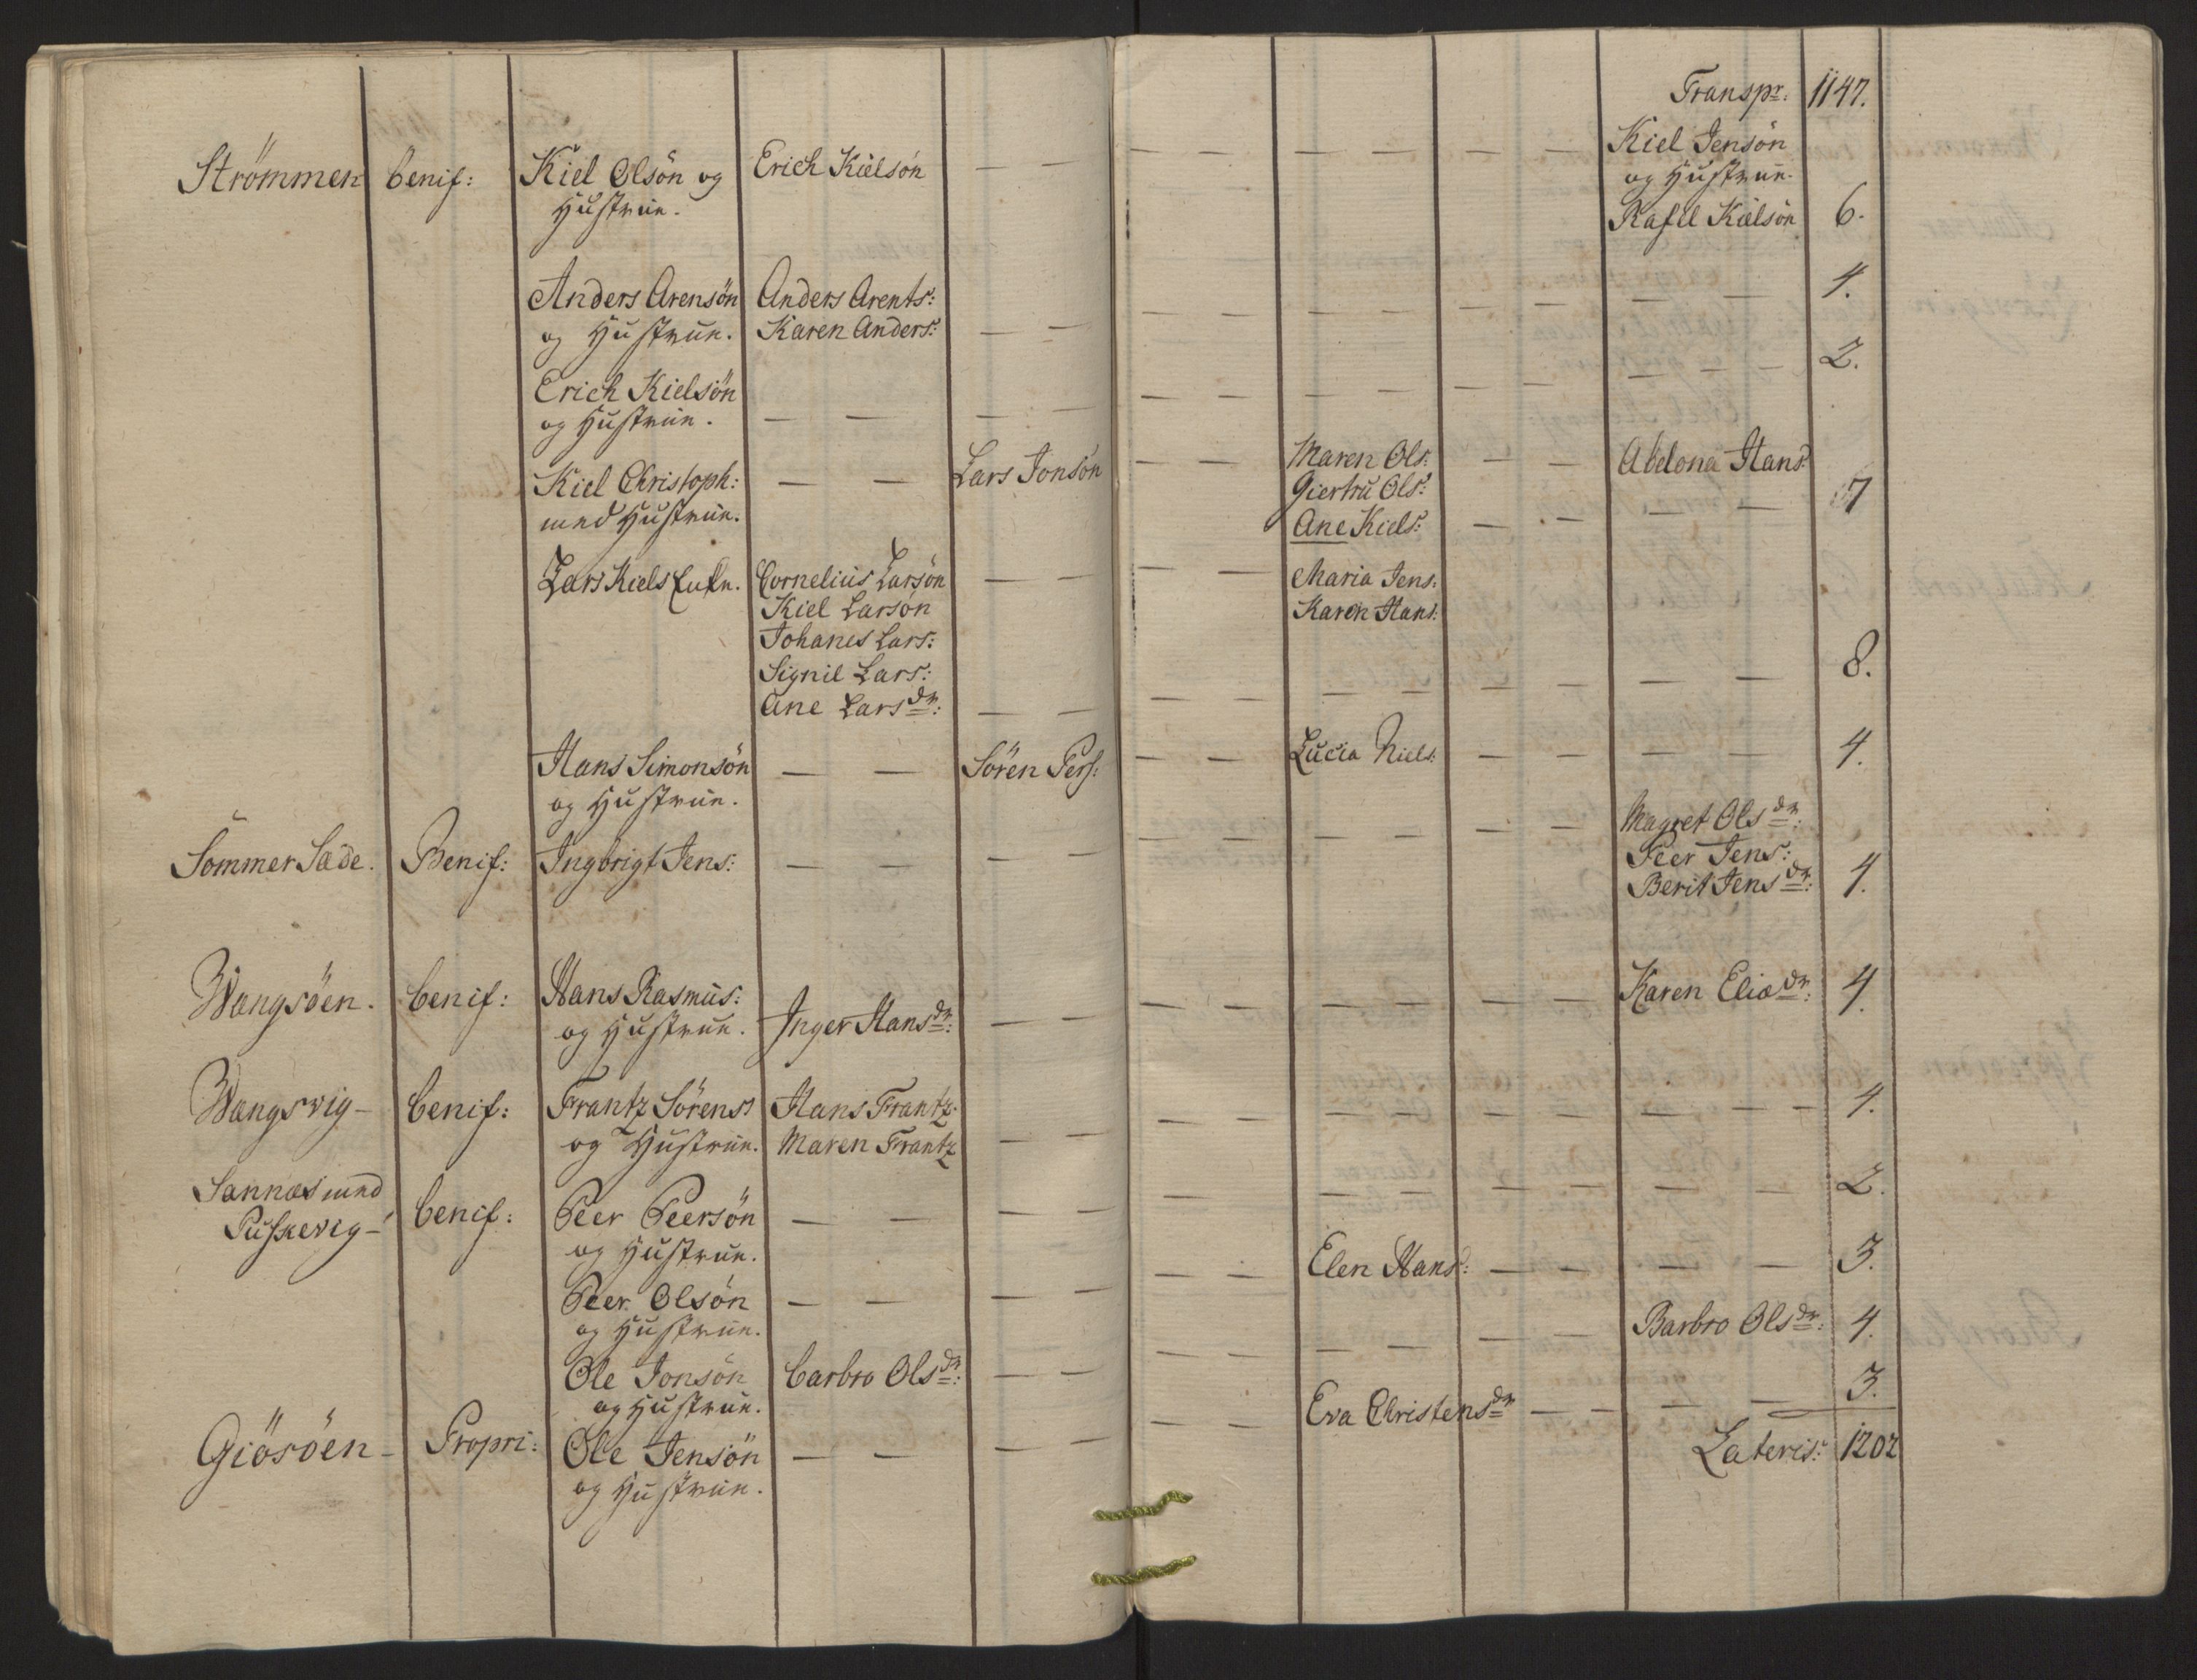 Transpr: 1147.
Strömmen benif: Kiel Olsön og Erich Kielsön — — — — — — — — Kiel Jensön
Hustrue. og Hustrue.
Rafel Kielsön 6.
Anders Arensön Anders Arents: 4.
og Hustrue. Karen Anders: — — — — — — — — — —
Erich Kielsön 2.
og Hustrue. — — — — — — — — — — — —
Kiel Christoph: — — Lars Jonsön — — Maren Ols: — — Abelona Hans:
med Hustrue. Giertru Ols: 7
Ane Kiels: — — — —
Lars Kiels Enke. Cornelius Larsön — — — — Maria Jens:
Kiel Larsön Karen Hans:
Johanes Lars:
Signil Lars: 8.
Ane Larsdr: — — — — — — — — — —
Hans Simonsön — — Sören Pers: — — Lucia Niels: — — — — 4.
og Hustrue.
Magret Olsdr:
Sommer Sæde. Benif: Ingbrigt Jens: — — — — — — — — — — Peer Jens:
Berit Jensdr: 4.
Wangsöen. benif: Hans Rasmus: Karen Eliædr: 4.
og Hustrue. Inger Hansdr: — — — — — — — —
Wangsvig — benif: Frantz Sörens Hans Frantz: 4.
og Hustrue. Maren Frantz — — — — — — — — — —
Sannæs med
Puskevig — benif: Peer Peersön — — — — — — — — — — — — 2.
og Hustrue.
Peer Olsön — — — — — — Elen Hans: — — — — 3.
og Hustrue.
Ole Jonsön barbro Olsdr: — — — — — — — — Barbro Olsdr: 4.
og Hustrue.
Giösöen — Propri: Ole Jensön — — — — — — Eva Christensdr — — — — 3.
og Hustrue.
Lateris: 1202